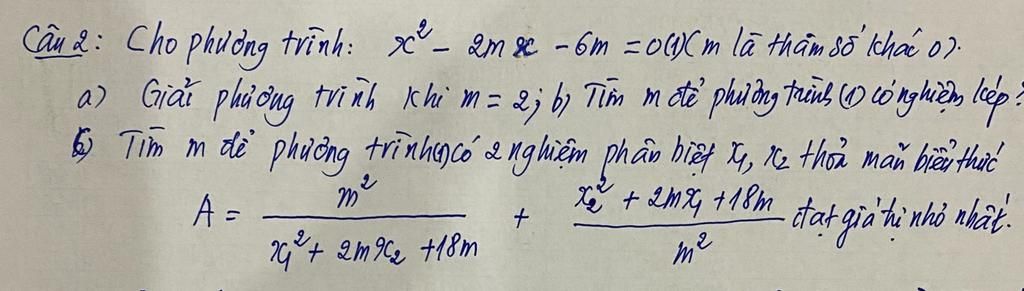 Câu 2: Cho phương trình: x² - 2mx - 6m = 0 (1) (m là tham số khác 0).
a) Giải phương trình khi m = 2; b) Tìm m để phương trình (1) có nghiệm kép?
c) Tìm m để phương trình (1) có 2 nghiệm phân biệt x₁, x₂ thoả mãn biểu thức
A = m² / (x₁² + 2mx₂ + 18m) + (x₂² + 2mx₁ + 18m) / m² đạt giá trị nhỏ nhất.